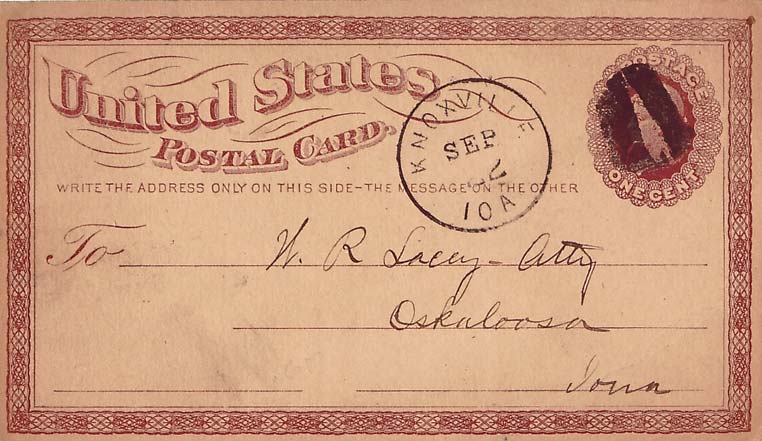 United States
POSTAL CARD.
WRITE THE ADDRESS ONLY ON THIS SIDE-THE MESSAGE ON THE OTHER
POSTAGE
ONE CENT
KNOXVILLE
SEP
IOA
To W. R. Lacey - Atty
Oskaloosa
Iowa